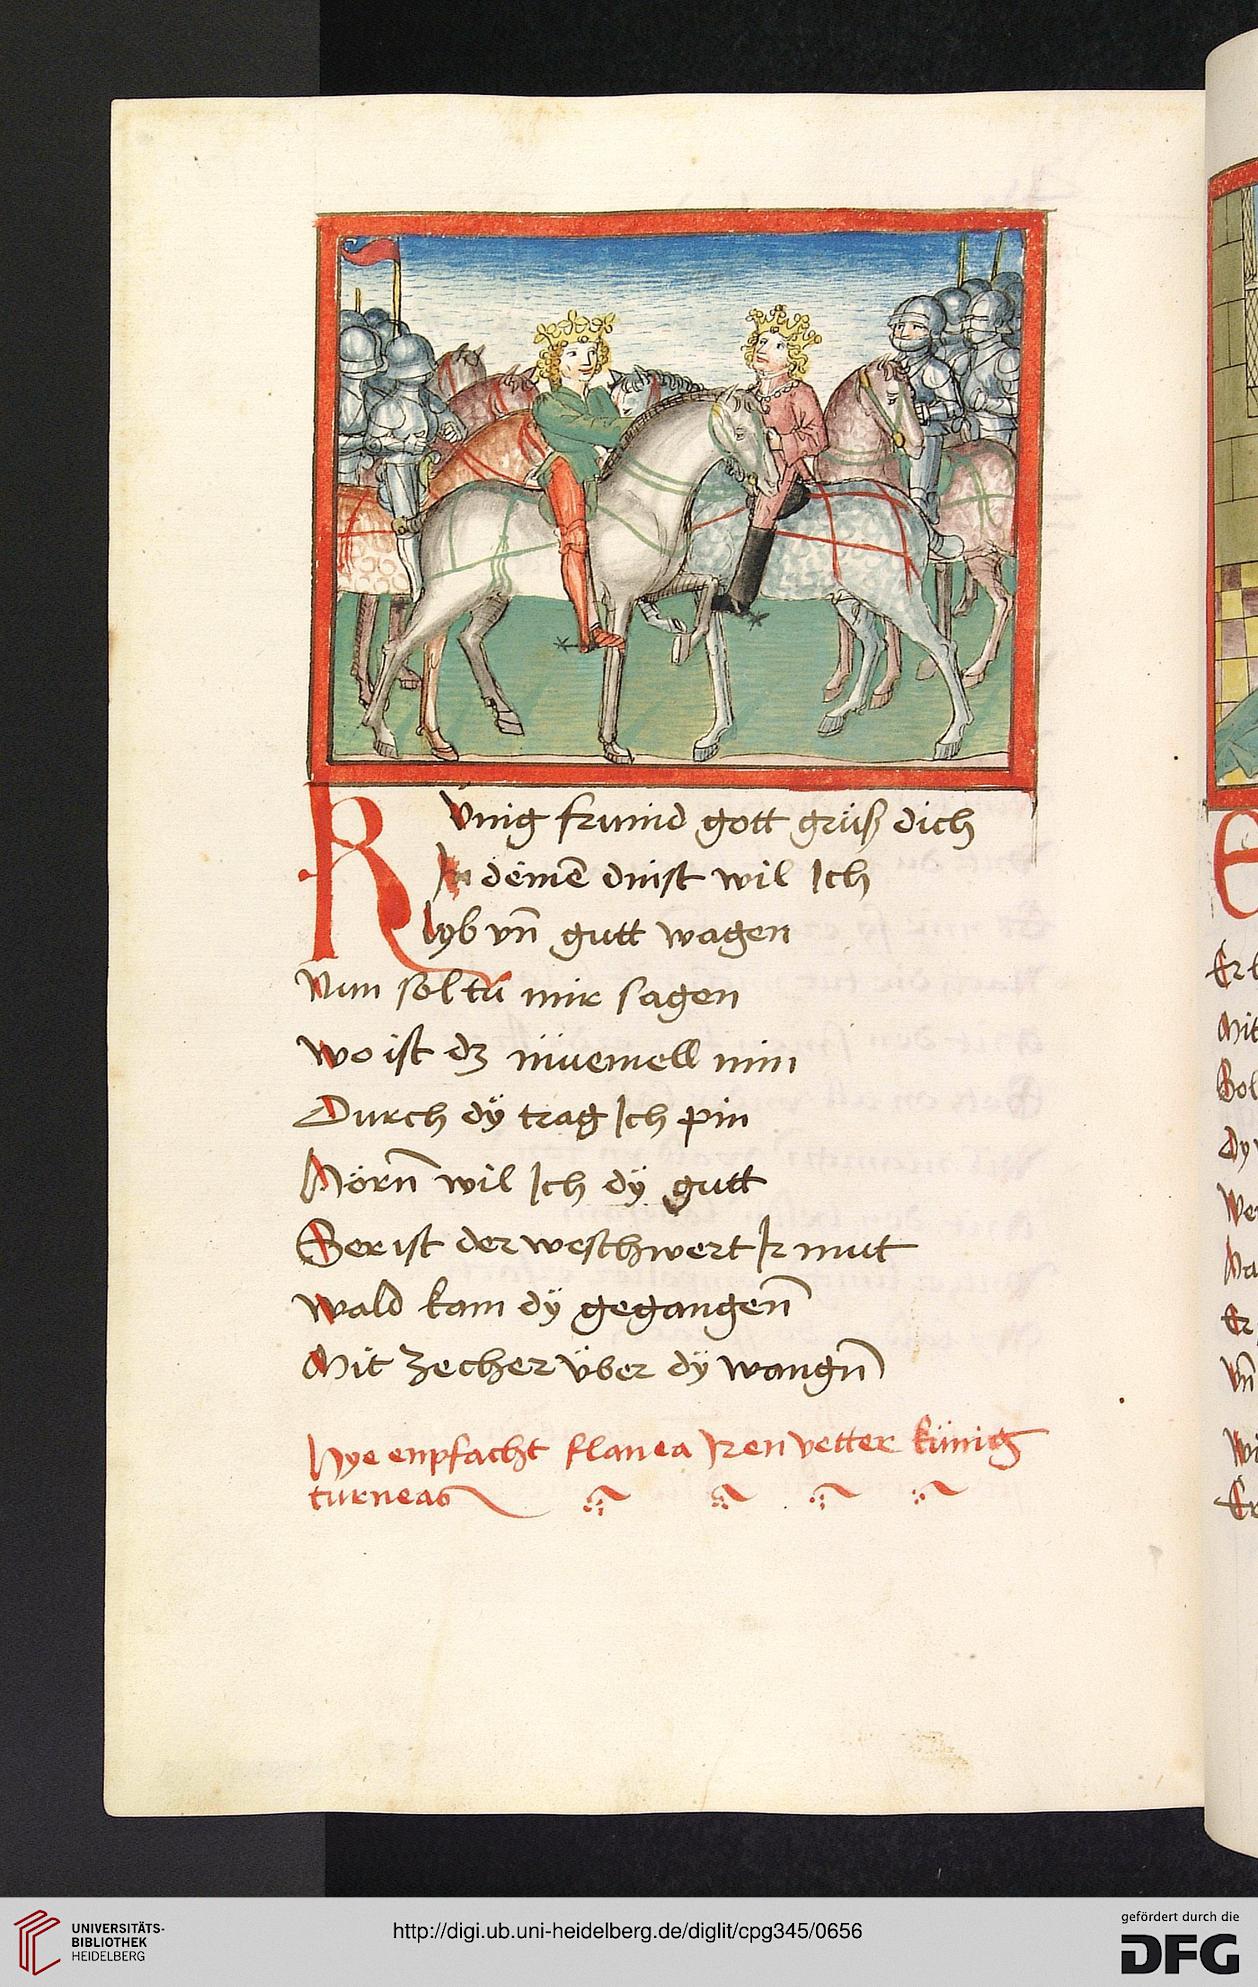 Künig frunnd gott grüß dich
In deinē dinst wil Ich
lyb vn̄ gutt wagen
Nun soltu mir sagen
wo ist dz niuemell min
Durch dÿ trag Ich pin
Mörn̄ wil Ich dÿ gutt
Ser ist der weschwert Ir mut
wald kam dÿ gegangen̄
Mit zecher über dÿ wangn̄
Hye enpfacht flanea Iren vetter künig
turneas
Mit
Er
UNIVERSITÄTS-
BIBLIOTHEK
HEIDELBERG
http://digi.ub.uni-heidelberg.de/diglit/cpg345/0656
gefördert durch die
DFG